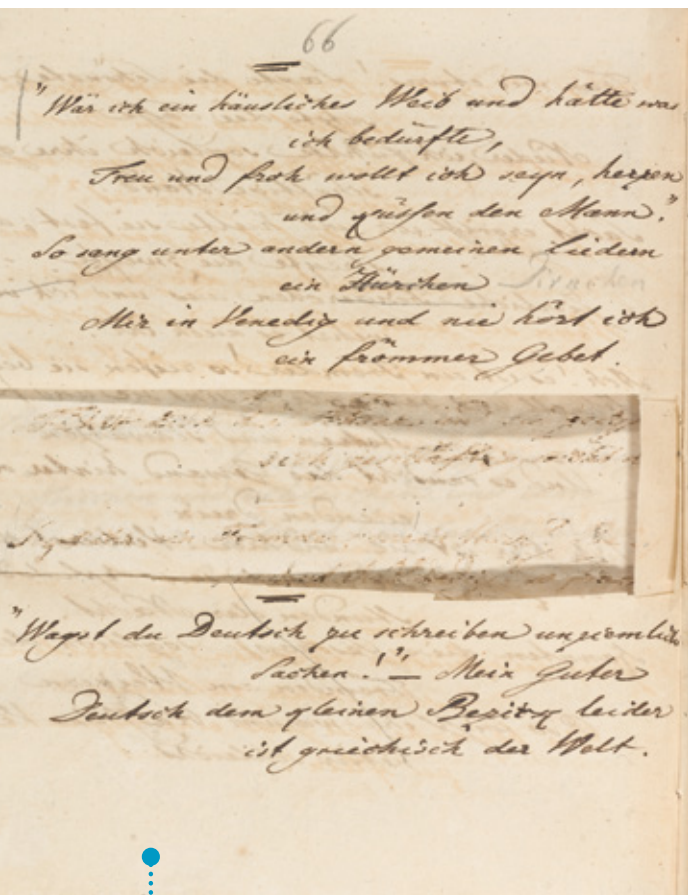 66
"Wär ich ein häusliches Weib und hätte was
ich bedürfte,
Treu und froh wollt ich seyn, herzen
und küssen den Mann."
So sang unter andern gemeinen Liedern
ein Hürchen
Mir in Venedig und nie hört ich
ein frömmer Gebet.
"Wagst du Deutsch zu schreiben unziemliche
Sachen!" — Mein Guter
Deutsch dem kleinen Bezirk leider
ist griechisch der Welt.